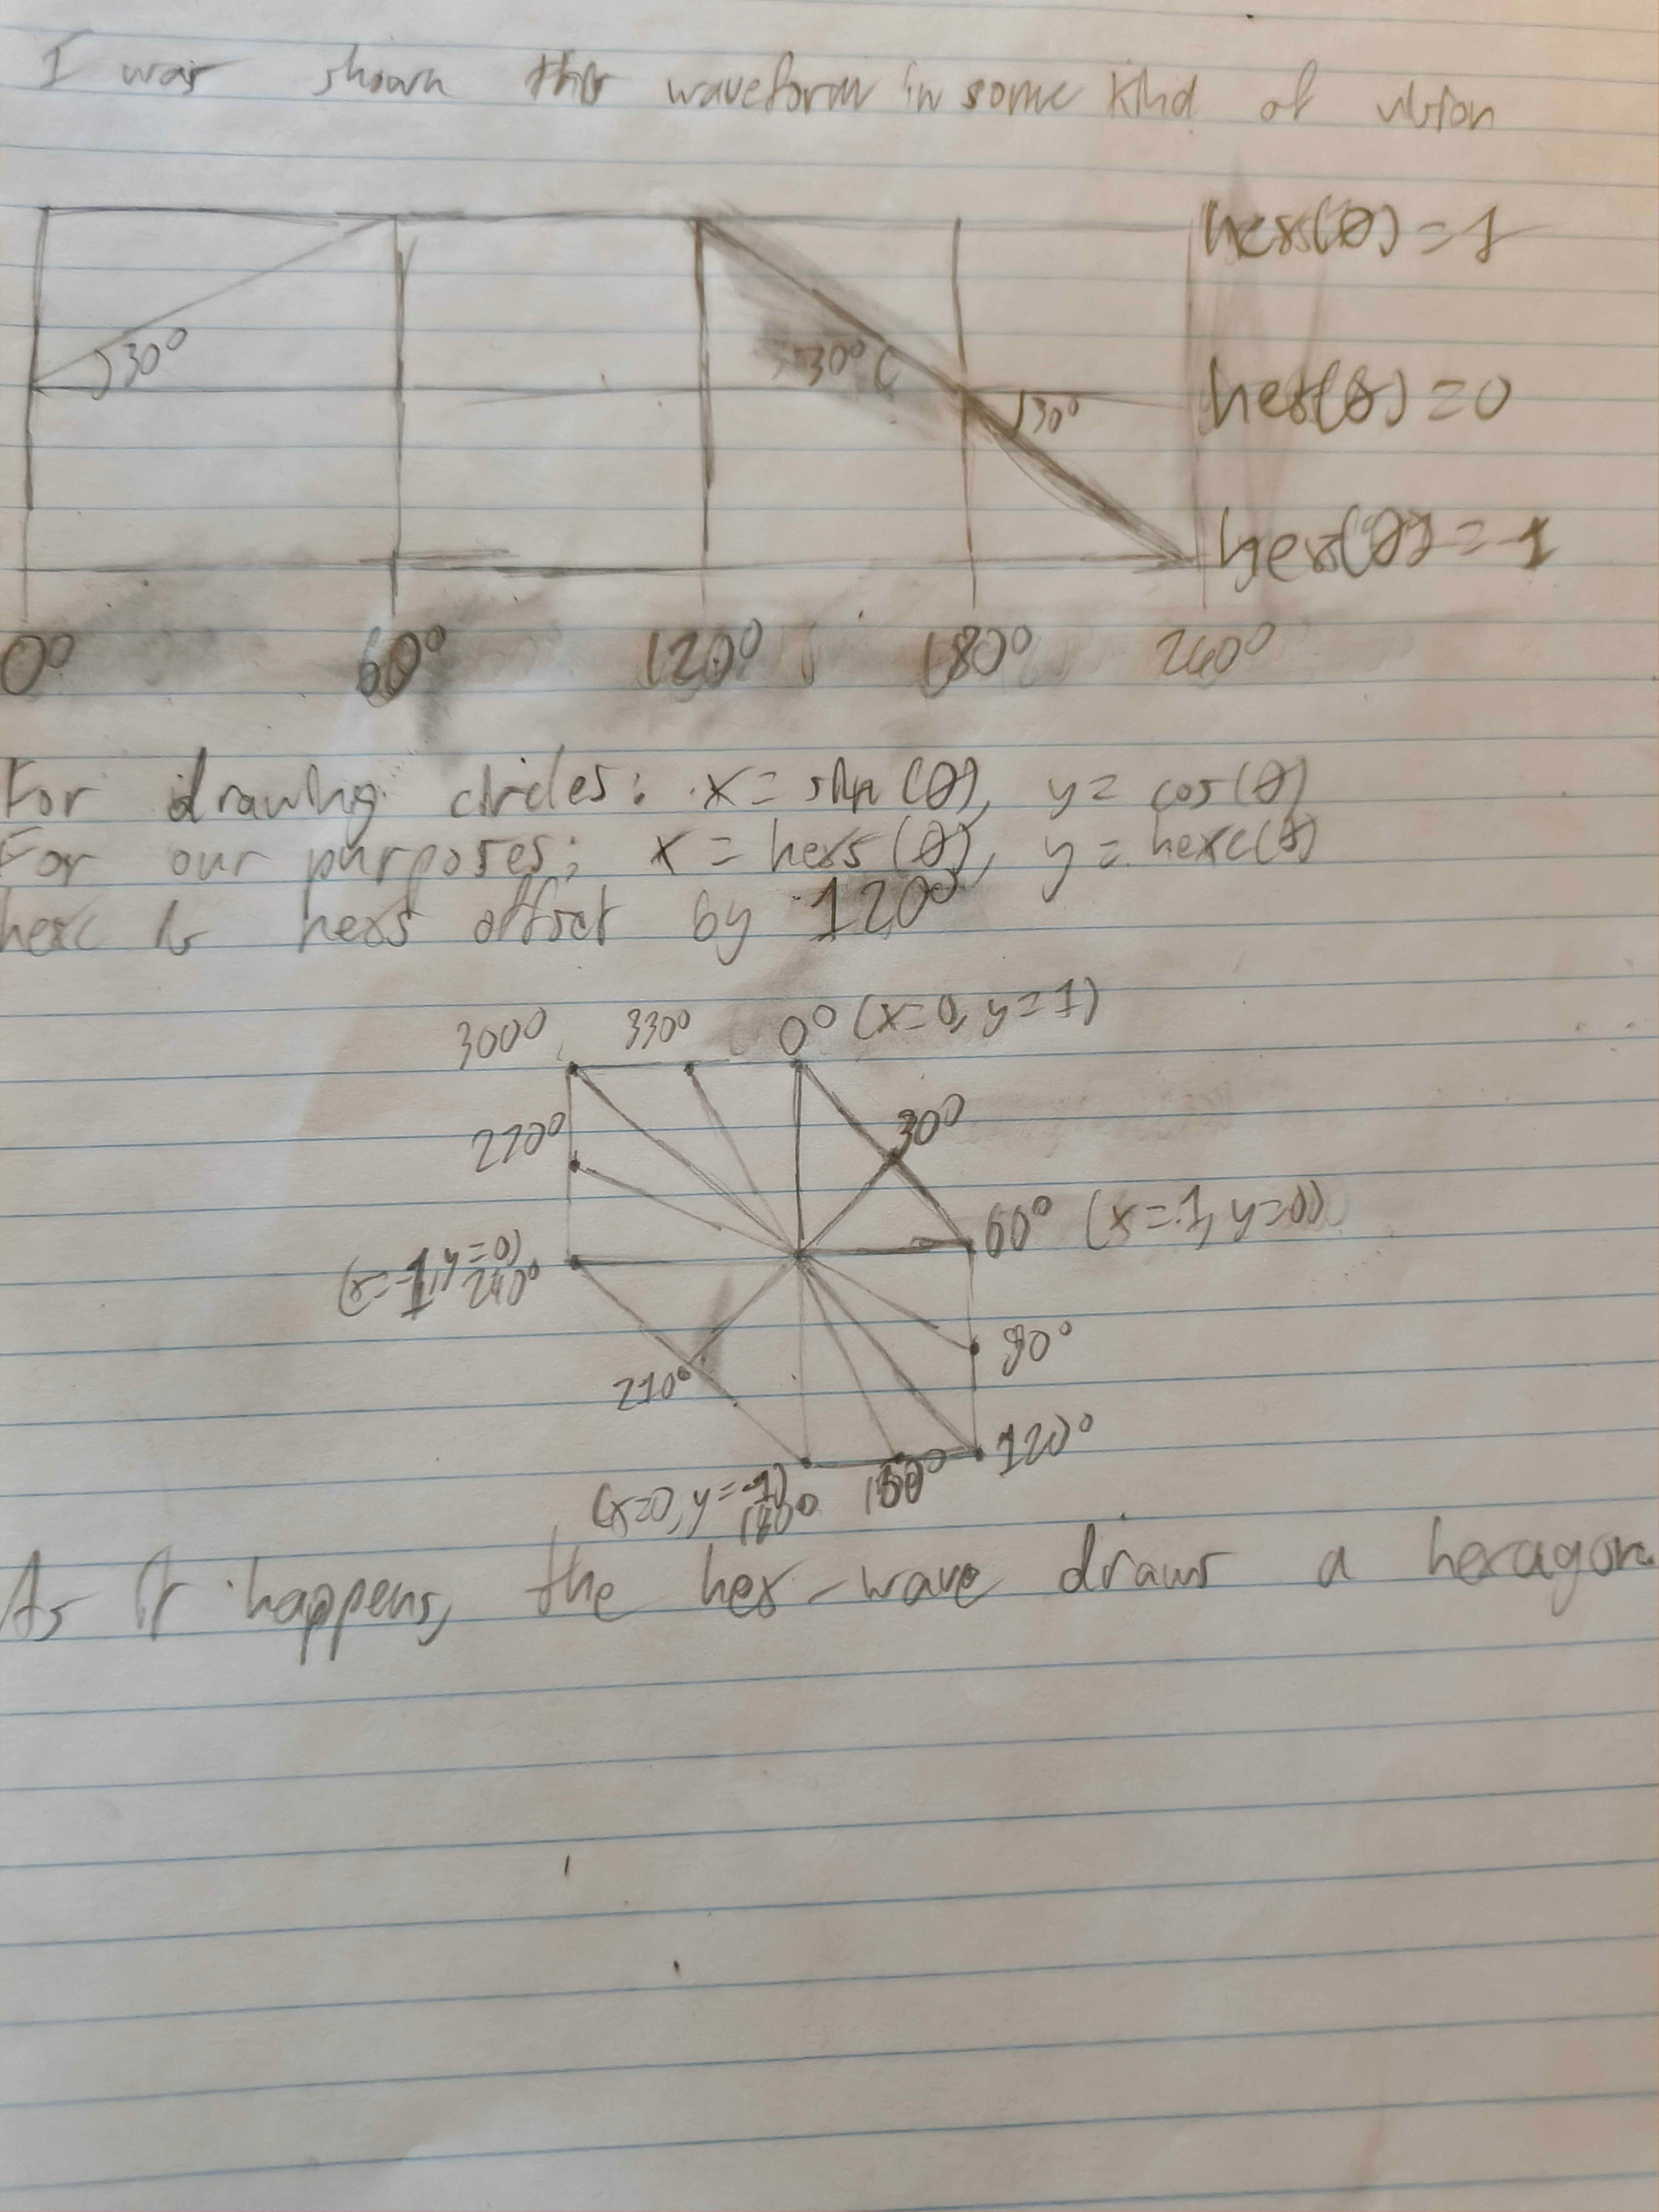 I was shown this waveform in some kind of vision
hexs(θ) = 1
30°
30°
30°
hexs(θ) = 0
hexs(θ) = -1
0° 60° 120° 180° 240°
For drawing circles: x = sin(θ), y = cos(θ)
For our purposes: x = hexs(θ), y = hexc(θ)
hexc is hexs offset by 120°
300° 330° 0° (x=0, y=1)
270° 30°
60° (x=1, y=0)
(x=-1, y=0)
240°
90°
210°
120°
(x=0, y=-1) 150°
180°
As it happens, the hex-wave draws a hexagon.